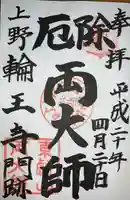 奉拝
平成二十年四月二日
厄除
両大師
上野輪王寺門跡